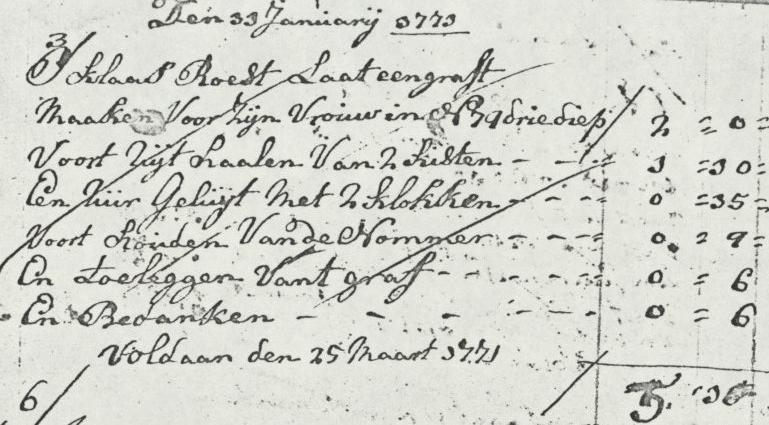 Den 11 Januarij 1771
Klaas Roest Laat een graft
Maaken Voor Zijn Vrouw in No 79 drie diep 2 = 0 =
Voort Uijt haalen Van 2 kisten - - - 1 = 10 =
En Uur Geluijt Met 2 klokken - - - 0 = 15 =
Voort houden Van de Nommer - - - 0 = 9 =
En toeleggen Vant graf - - - - - 0 = 6
En Bedanken - - - - - - 0 = 6
Voldaan den 25 Maart 1771
6 5